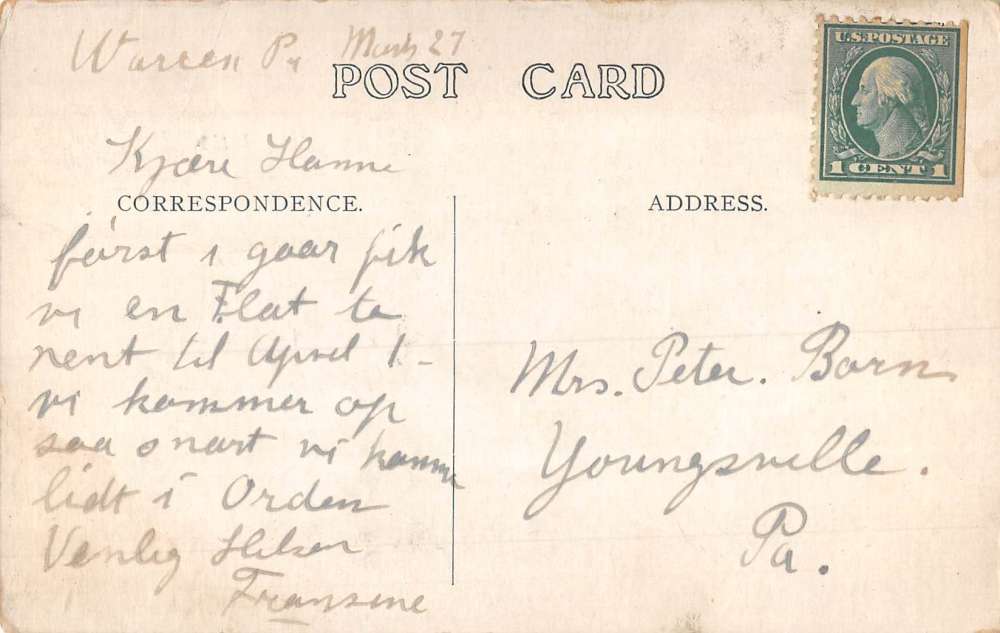 Warren Pa March 27
POST CARD
U.S. POSTAGE
1 CENT 1
Kjære Hanne
CORRESPONDENCE.
først i gaar fik
vi en Flat to
rent til April 1-
vi kommer op
saa snart vi komme
lidt i Orden
Venlig Hilsen
Fransine
ADDRESS.
Mrs. Peter. Born
Youngsville.
Pa.